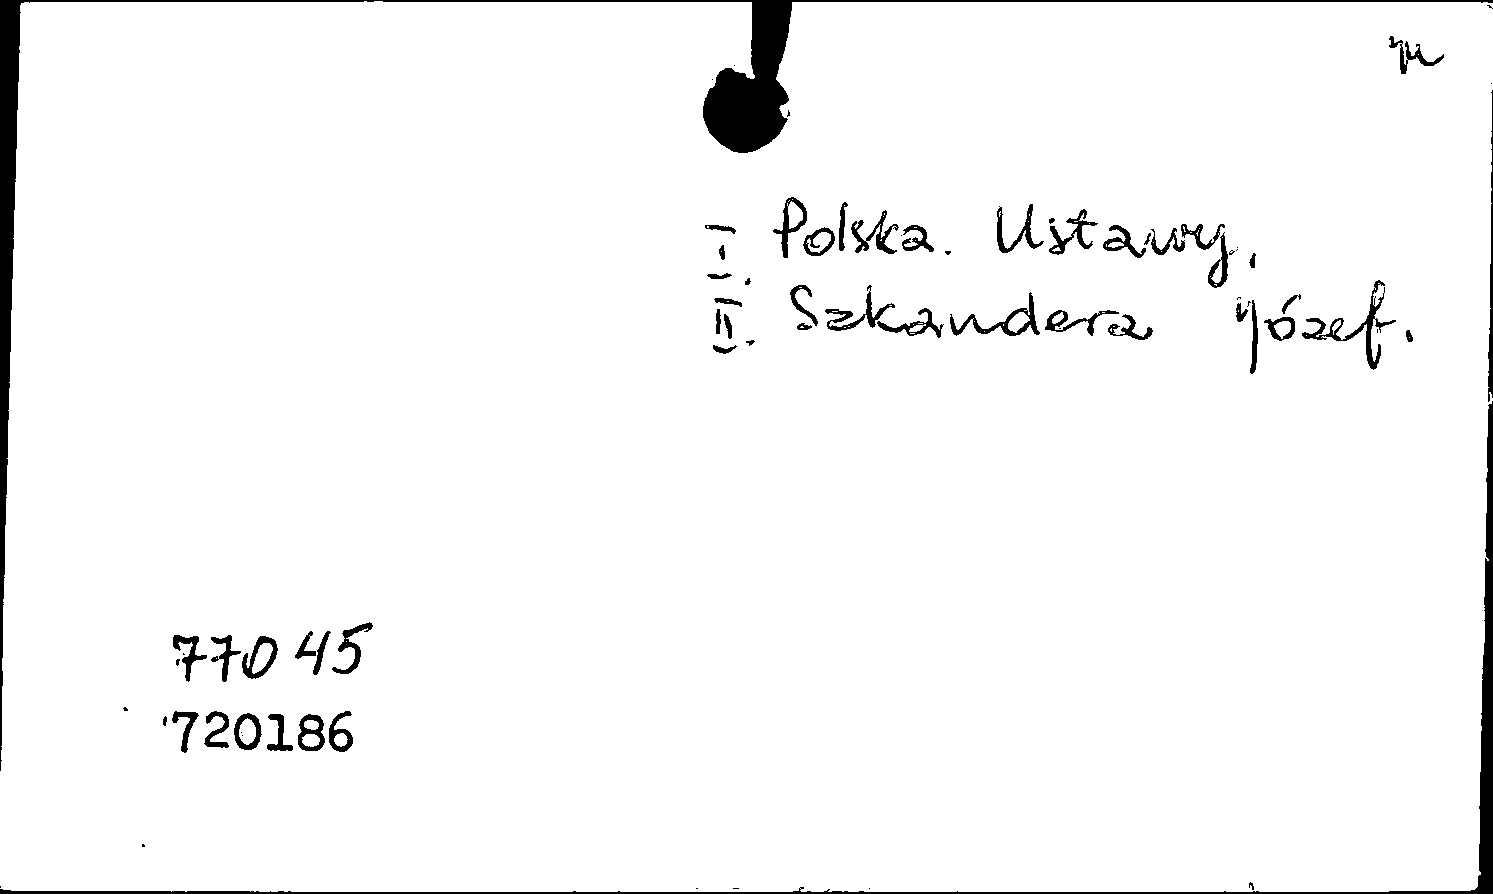 I. Polska. Ustawy.
II. Szkandera Józef.
77045
720186